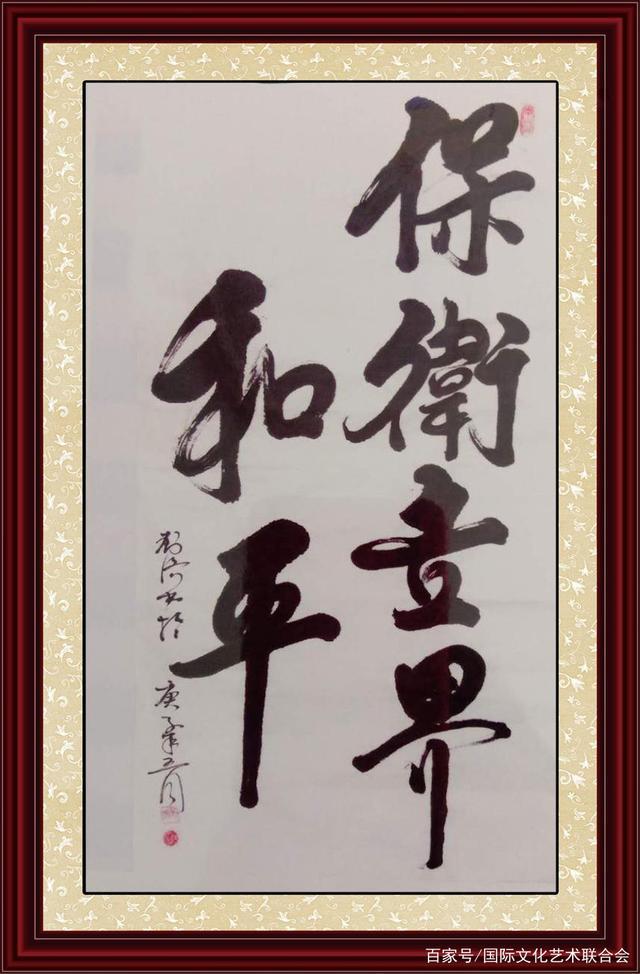 保衛世界
和平
庚子年五月
百家号/国际文化艺术联合会